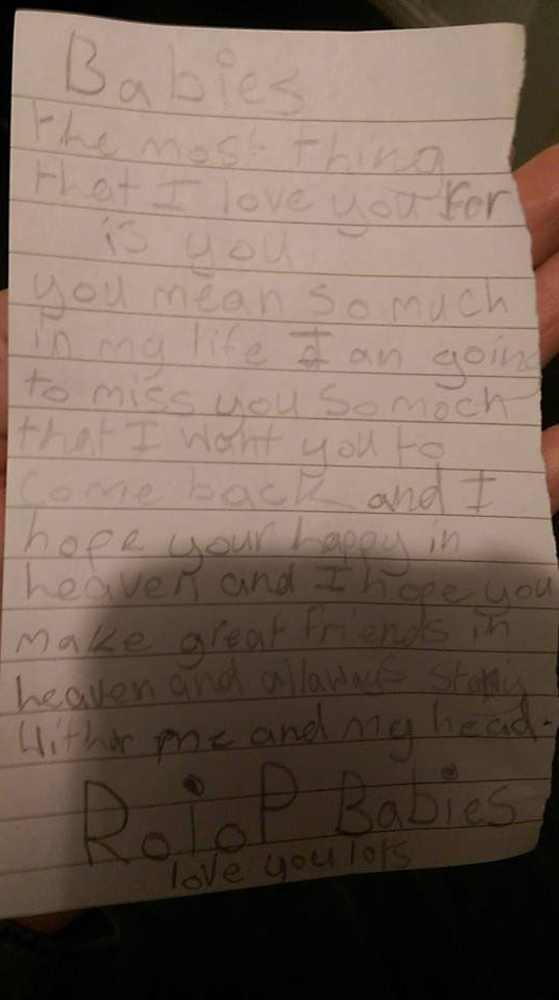 Babies
the most thing
that I love you For
is you
you mean so much
in my life I an going
to miss you so moch
that I want you to
come back and I
hope your happy in
heaven and I hope you
make great friends in
heaven and allaways
With me and my head.
RoioP Babies
love you lots